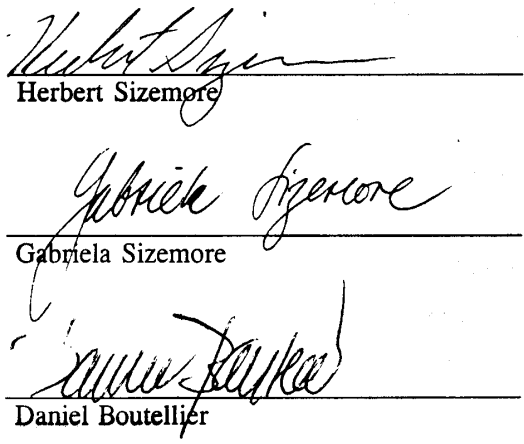 Herbert Sizemore
Herbert Sizemore
Gabriela Sizemore
Gabriela Sizemore
Daniel Boutellier